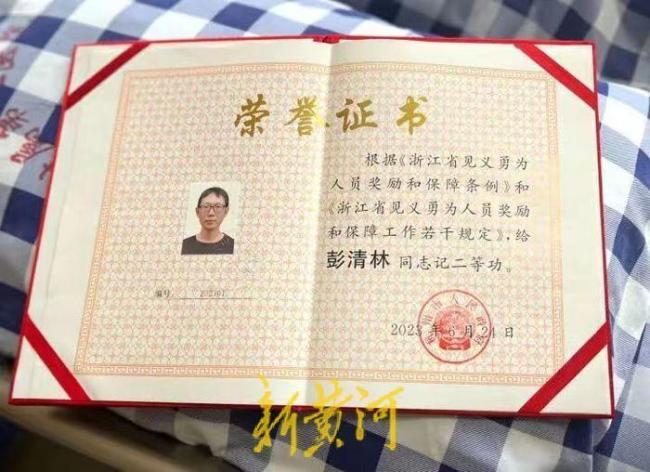 荣誉证书
根据《浙江省见义勇为
人员奖励和保障条例》和
《浙江省见义勇为人员奖励
和保障工作若干规定》,给
彭清林 同志记二等功。
编号:
2023 年 6 月 24 日
新黄河